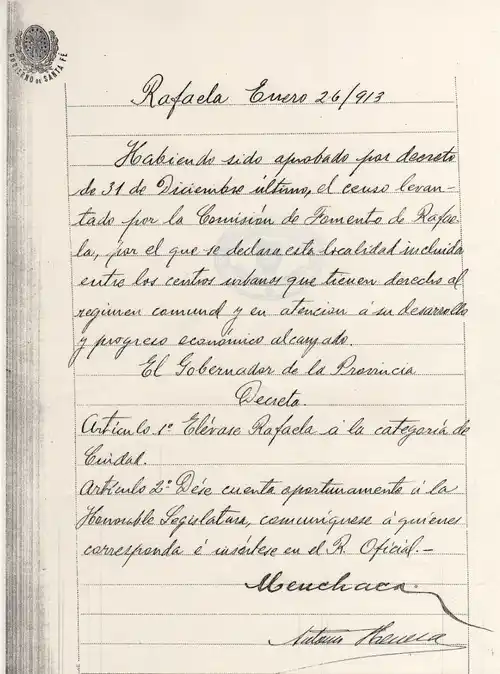 GOBIERNO DE SANTA FÉ
Rafaela Enero 26/913
Habiendo sido aprobado por decreto
de 31 de Diciembre último, el censo levan-
tado por la Comisión de Fomento de Rafae-
la, por el que se declara esta localidad incluida
entre los centros urbanos que tienen derecho al
regimen comunal y en atencion á su desarrollo
y progreso económico alcanzado.
El Gobernador de la Provincia
Decreta.
Artículo 1º Elévase Rafaela á la categoría de
Ciudad.
Artículo 2º Dése cuenta oportunamente á la
Honorable Legislatura, comuníquese á quienes
corresponda é insértese en el R. Oficial.-
Menchaca.
Antonio Herrera